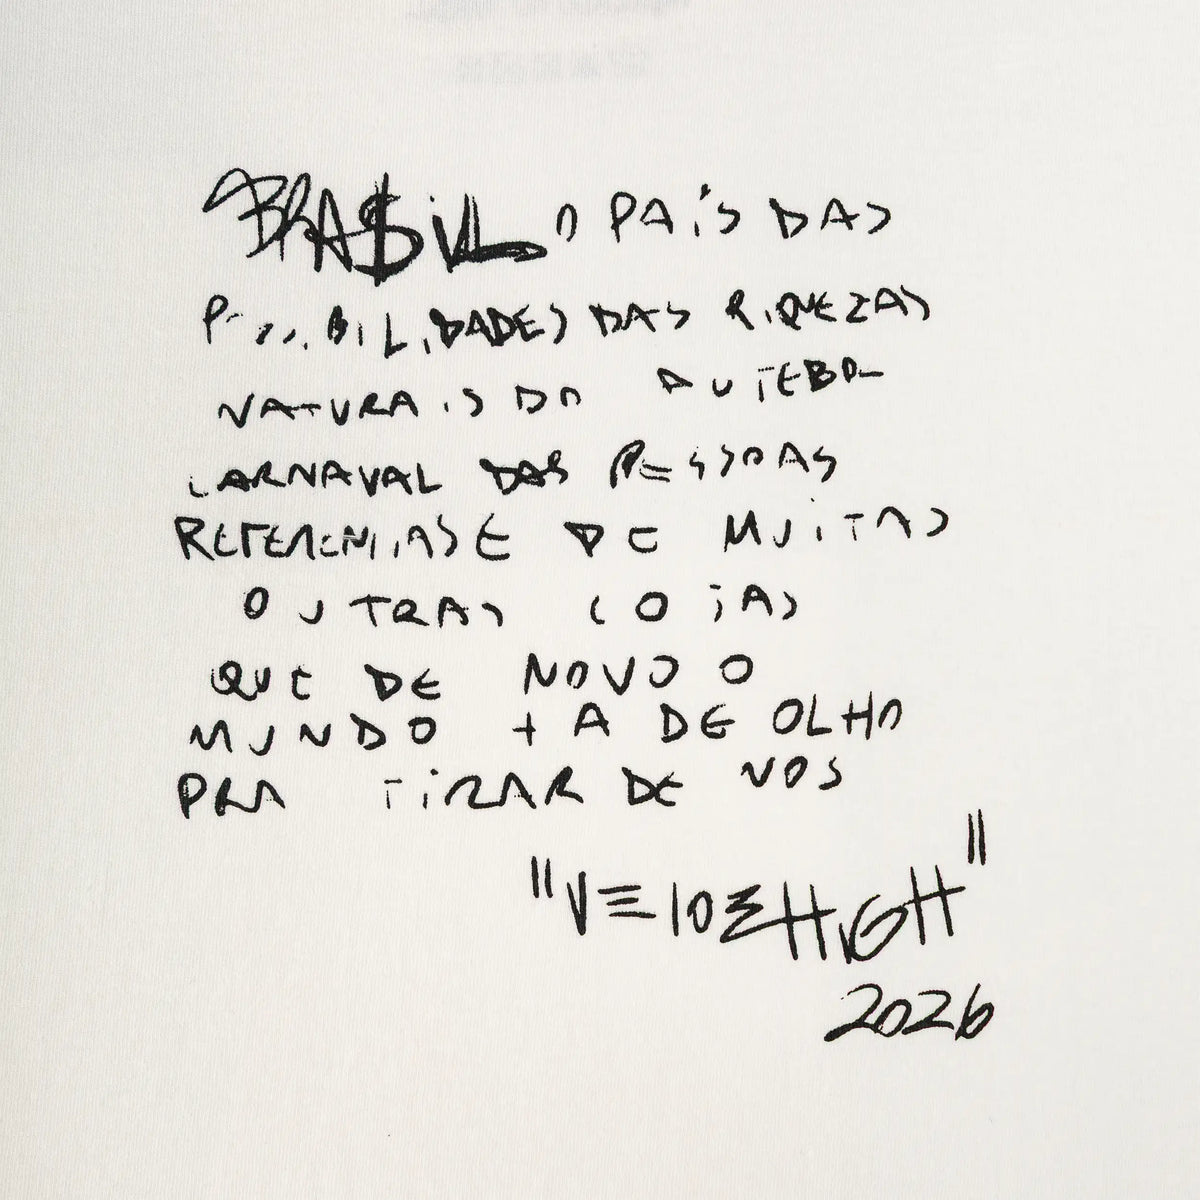 BRA$iL o PAíS DAS
POSSiBiLiDADES DAS RiQUEZAS
NATURAiS DO FUTEBOL
CARNAVAL DAS PESSOAS
REFERENCiAS E DE MUiTAS
OUTRAS COiAS
QUE DE NOVO O
MUNDO TA DE OLHO
PRA TiRAR DE NOS
2026